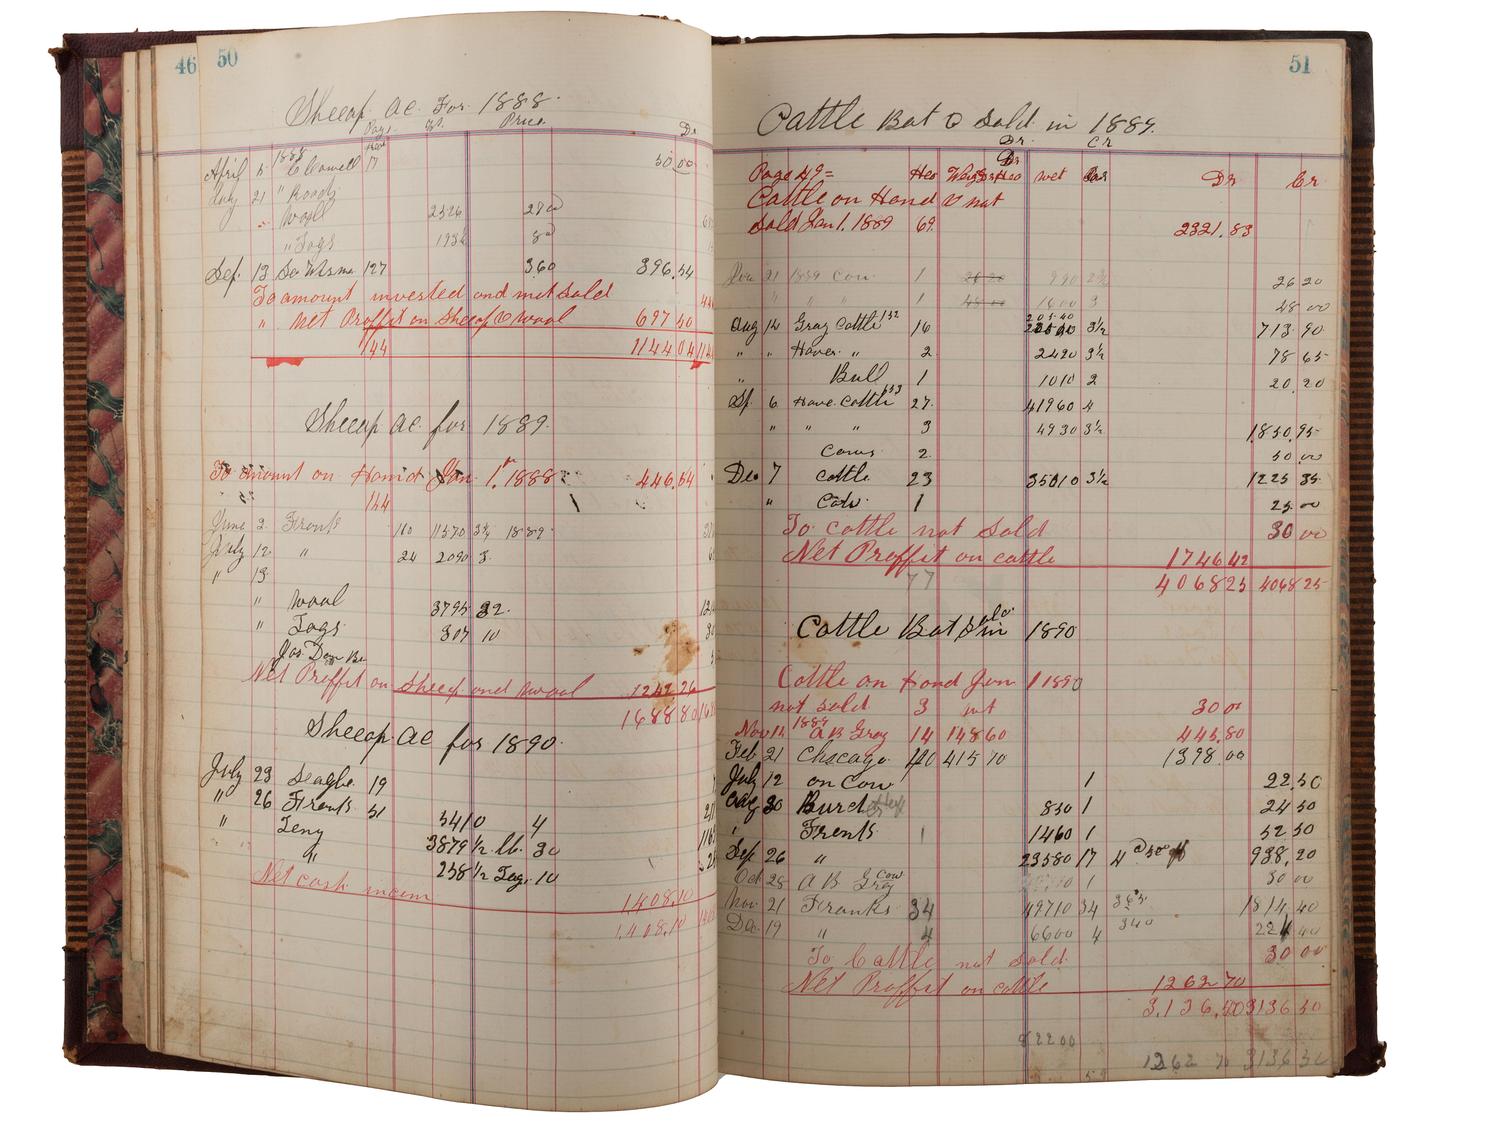 46 50
Sheeap. ac. For 1888.
Price
Dr
1888
April 5 " C Cowell 17 50.00
July 21 "
Wooll 2526 27
" Tags 193
Sep. 13 127 3.60 396.54
To amount invested and not sold
" Net Proffit on Sheeap & Wool 697 50
144 1144 04
Sheeap ac for 1889.
To amount on Hand Jan. 1, 1888 446.54
144
June 2. Frank 160 11570 3¾ 1889.
July 12 " 24 2090 3.
" 13.
" Wool 3795 32.
" Tags 307 10
Net Proffit on Sheeap and Wool 1242 26
1688 80
Sheeap. ac for 1890.
July 23 Seagle 19
" 26 Frank 51 5410 4
" Teny 3879 ½ lb. 30
" " 258 ½ Tag. 10
Net cash incom 1,408.10
1,408.10
51
Cattle Bot & Sold in 1889.
Dr. Cr
Page 49 = Hed wet Dr Cr
Cattle on Hand & not
sold Jan 1. 1889 69. 2321.83
21 1889 Cow 1 26 20 990 26 20
" " " 1 48 00 1600 3 48 00
205.40
Aug 14 Gray Cattle 152 16 3½ 713.90
" " Haver " 2 2420 3½ 78 65
" Bull 1 1010 2 20.20
Sp. 6 Have. Cattle 153 27. 41960 4
" " " 3 4930 3½ 1850.95
Cows 2 50.00
Dec 7 Cattle 23 35010 3½ 1225 35
" Cow 1 25.00
To cattle not Sold 30 00
Net Proffit on cattle 1746 42
77 4068 25 4068 25
Cattle Bot & Solo in 1890
Cattle on Hand Jan 1 1890
not sold 3 wt 30 00
Nov 14 1889 A B Gray 14 14860 445.80
Feb 21 Chacago 40 41570 1398.00
July 12 on Cow 1 22.50
Aug 30 Burd 850 1 24 50
" Frank 1 1460 1 52 50
Sep 26 " 23580 17 4 938.20
Oct 28 A B Gray Cow 1 30 00
Nov. 21 Franks 34 49710 34 365 1814.40
Dec. 19 " 4 6600 4 340 224 40
To Cattle not Sold. 30 00
Net Proffit on cattle 1262 70
3.136.50 3136 50
82200
1262 70 3136 50